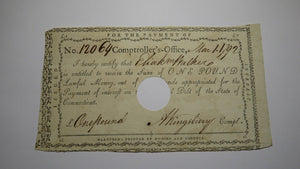 FOR THE PAYMENT OF
No. 12064 Comptroller's-Office,
I hereby certify that
is entitled to receive the Sum of ONE POUND
Lawful Money, out of appropriated for the
Payment of Interest on Debt of the State of
Connecticut.
£ One pound AKingsbery Compt.
HARTFORD: PRINTED BY HUDSON AND GOODWIN.